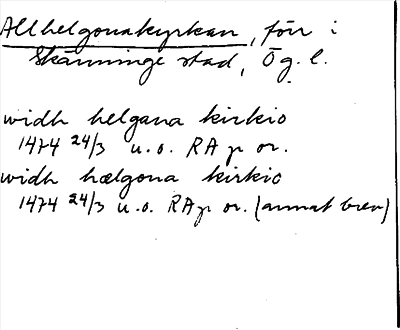 Allhelgonakyrkan, förr i
Skänninge stad, Ög. l.
widh helgana kirkio
1474 24/3 u.o. RAp or.
widh hælgona kirkio
1474 24/3 u.o. RAp or. (annat brev)